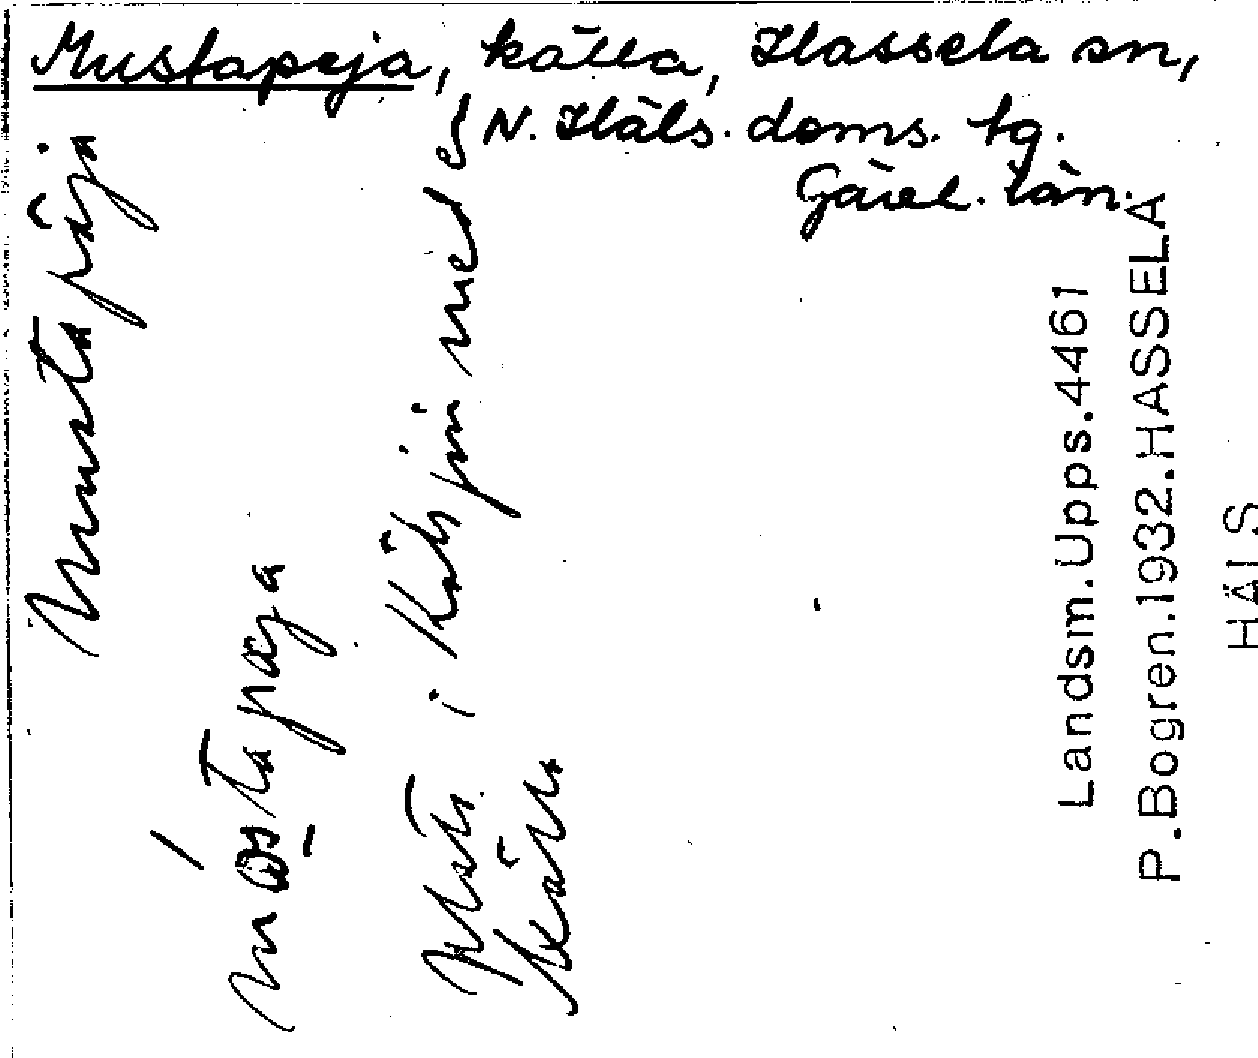 Mustapeja, källa, Hassela sn,
N. Häls. doms. tg.
Gävl. län.
Mustapäja
mostapæja
i med
Landsm.Upps.4461
P.Bogren.1932.HASSELA
HÄLS